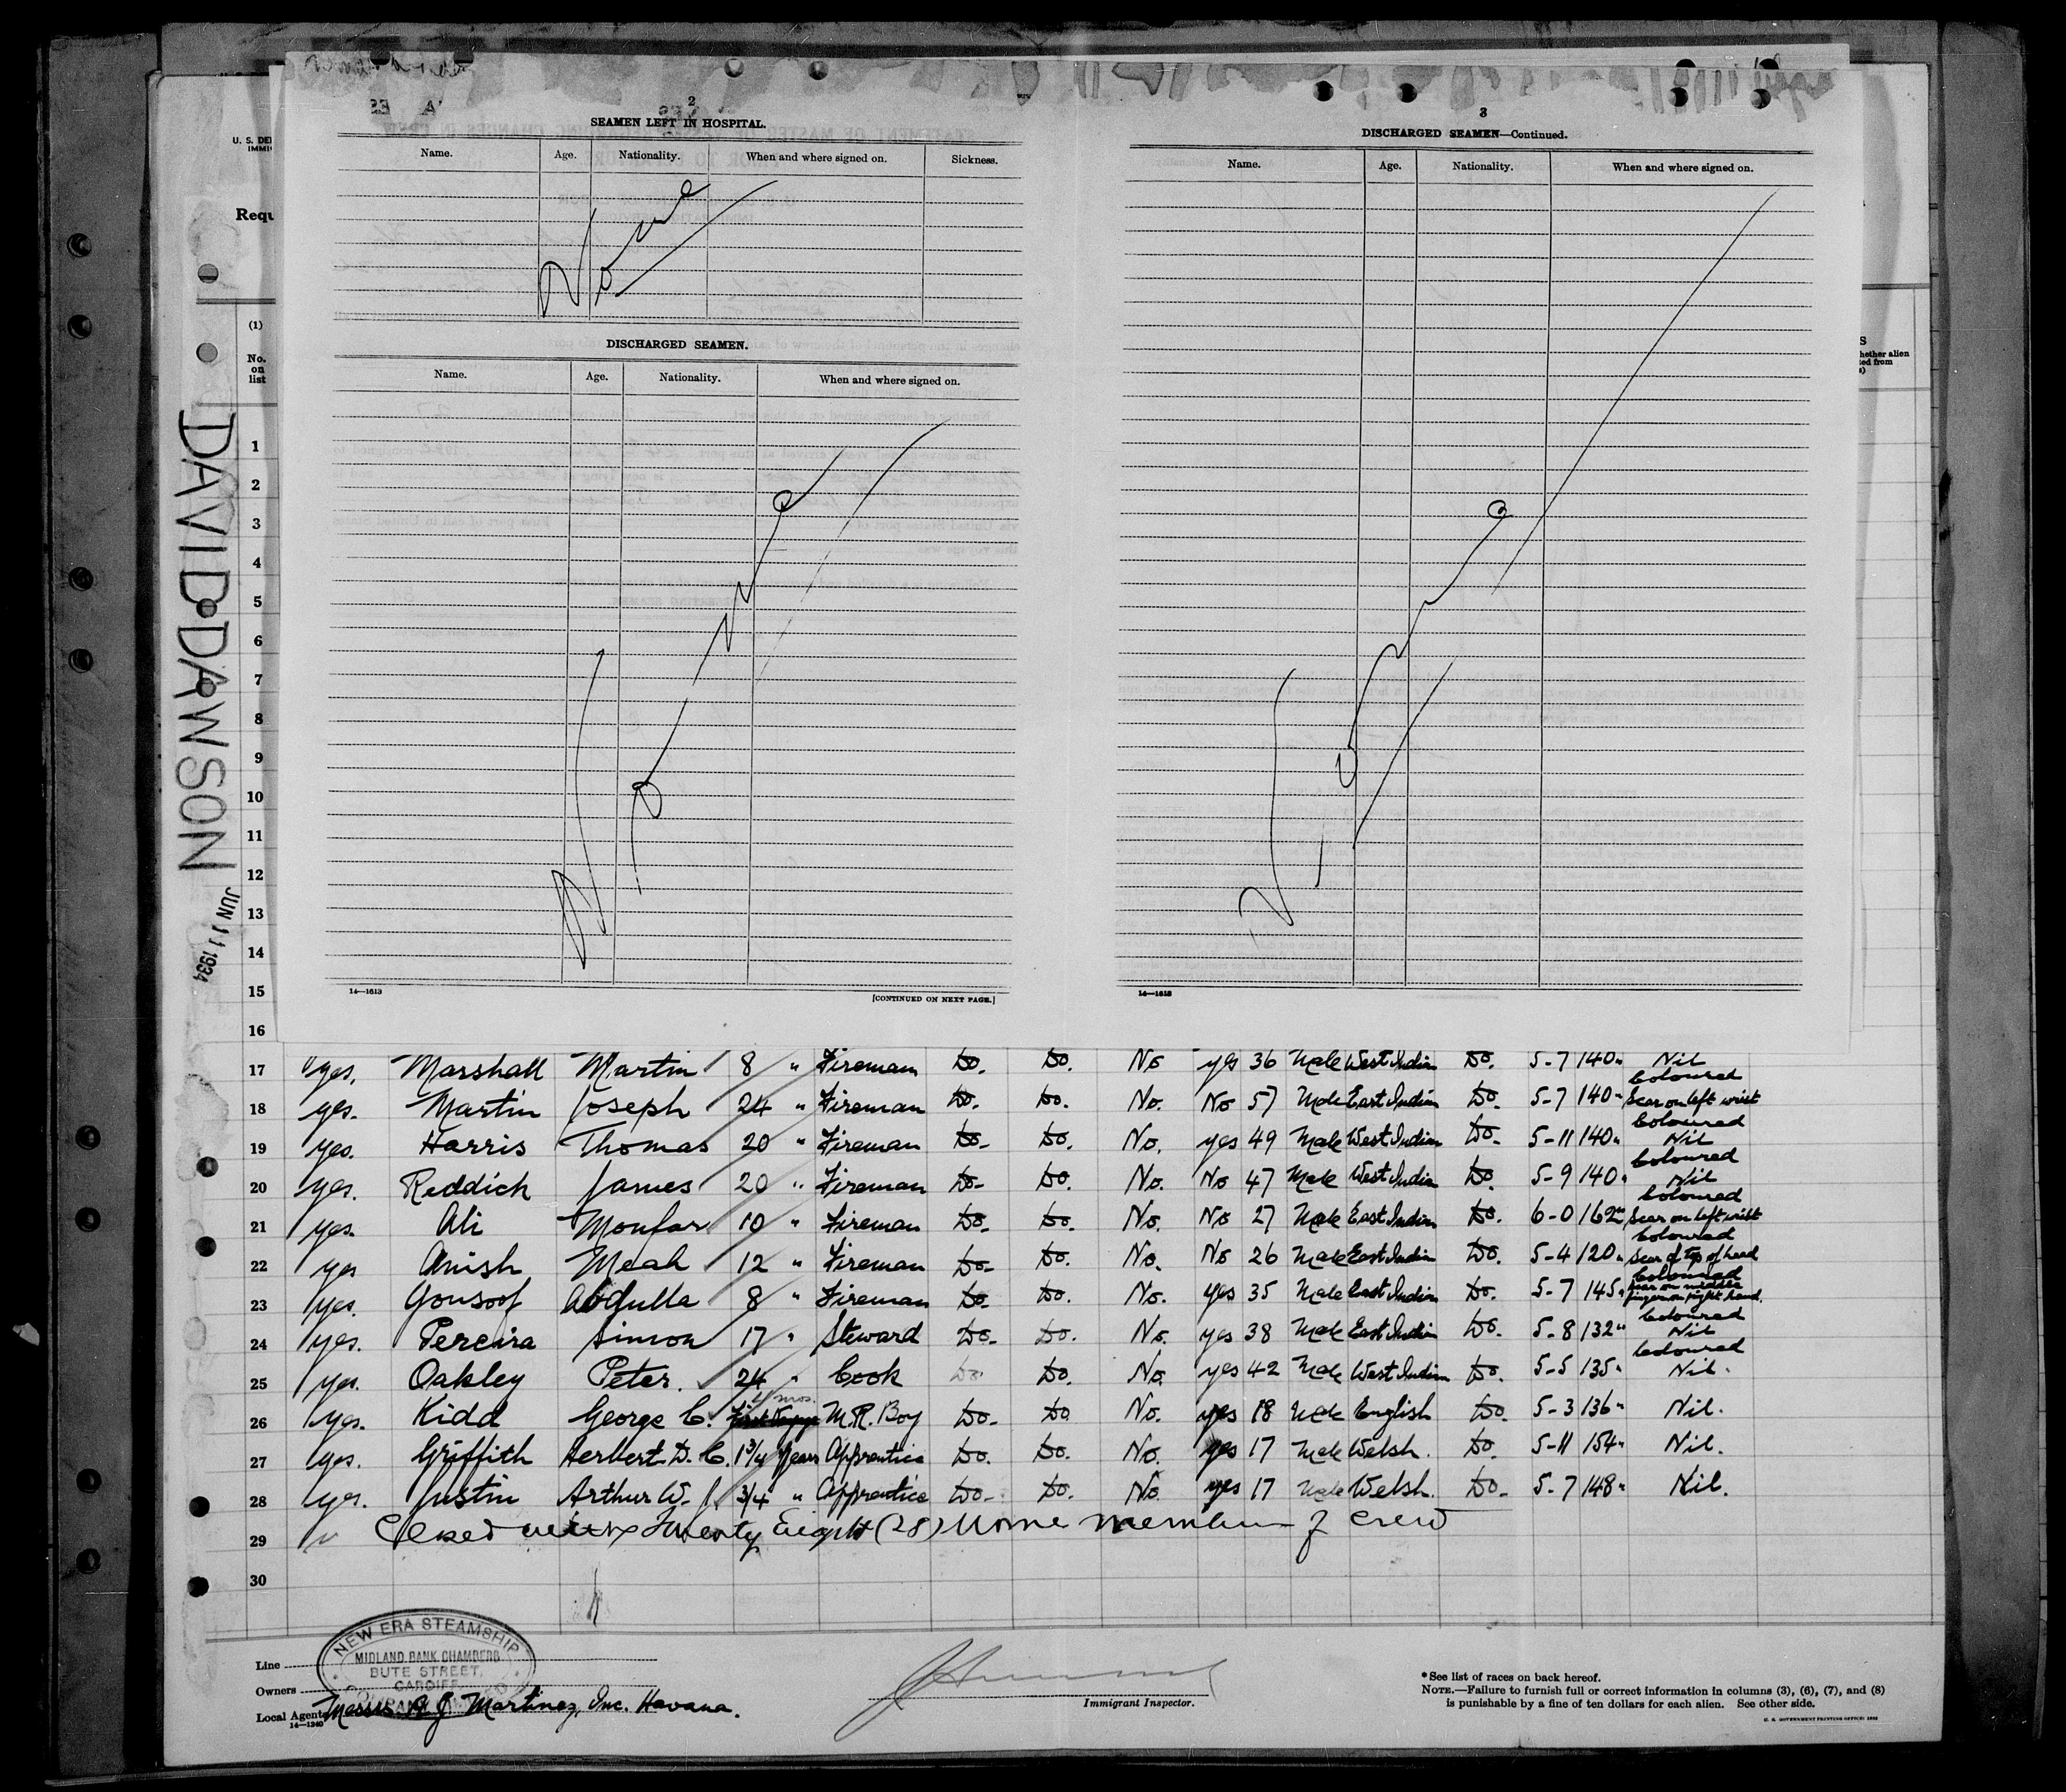 2
SEAMEN LEFT IN HOSPITAL.
Name. Age. Nationality. When and where signed on. Sickness.
None
DISCHARGED SEAMEN.
Name. Age. Nationality. When and where signed on.
None
14—1613 [CONTINUED ON NEXT PAGE.]
3
DISCHARGED SEAMEN—Continued.
Name. Age. Nationality. When and where signed on.
None
14—1613
U. S. DE
IMMI
Requ
(1)
No.
on
list
S
hether alien
ted from
DAVID DAWSON
JUN 11 1934
1
2
3
4
5
6
7
8
9
10
11
12
13
14
15
16
17 yes. Marshall Martin 8 " Fireman Do. Do. No yes 36 Male West Indian Do. 5-7 140" Nil
18 yes. Martin Joseph 24 " Fireman Do. Do. No. No 57 Male East Indian Do. 5-7 140" Coloured Scar on left wrist
19 yes. Harris Thomas 20 " Fireman Do- Do. No. yes 49 Male West Indian Do- 5-11 140" Coloured Nil
20 yes. Reddick James 20 " Fireman Do- Do. No. No 47 Male West Indian Do. 5-9 140" Coloured Nil
21 yes. Ali Monfar 10 " Fireman Do- Do. No. No 27 Male East Indian Do. 6-0 162" Coloured Scar on left wrist
22 yes Anish Meah 12 " Fireman Do- Do. No. No 26 Male East Indian Do. 5-4 120" Coloured Scar of top of head
23 yes. Gousoof Abdulla 8 " Fireman Do- Do. No. yes 35 Male East Indian Do. 5-7 145" Coloured Scar on middle finger on right hand.
24 yes. Pereira Simon 17 " Steward Do- Do. No. yes 38 Male East Indian Do. 5-8 132" Coloured Nil
25 yes. Oakley Peter. 24 " Cook Do. Do. No yes 42 Male West Indian Do. 5-5 135" Coloured Nil.
26 yes. Kidd George C. mos. M.R. Boy Do- Do No. yes 18 Male English Do- 5-3 136" Nil.
27 yes. Griffith Herbert D. C. 1 3/4 Years Apprentice Do. Do. No. yes 17 Male Welsh. Do. 5-11 154" Nil.
28 yes. Justin Arthur W. J. 3/4 " Apprentice Do- Do. No yes 17 Male Welsh. Do- 5-7 148" Nil.
29 Closed with Twenty Eight (28) members of crew
30
NEW ERA STEAMSHIP
MIDLAND BANK CHAMBERS
BUTE STREET,
CARDIFF
Line
Owners
Local Agents Messrs A. J. Martinez, Inc. Havana.
14—1240
Immigrant Inspector.
* See list of races on back hereof.
NOTE.—Failure to furnish full or correct information in columns (3), (6), (7), and (8)
is punishable by a fine of ten dollars for each alien. See other side.
U. S. GOVERNMENT PRINTING OFFICE: 1932